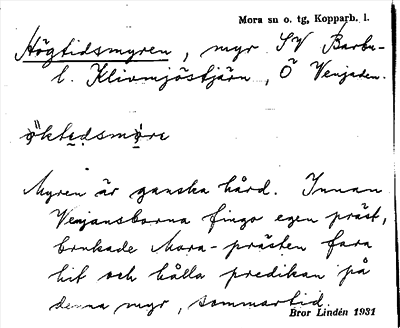 Mora sn o. tg, Kopparb. l.
Högtidsmyren, myr SV Barbu-
l. Klivmjöstjärn, Ö Venjaden.
öktᴉdsmörɛ
Myren är ganska hård. Innan
Venjansborna fingo egen präst,
brukade Mora-prästen fara
hit och hålla predikan på
denna myr, sommartid.
Bror Lindén 1931